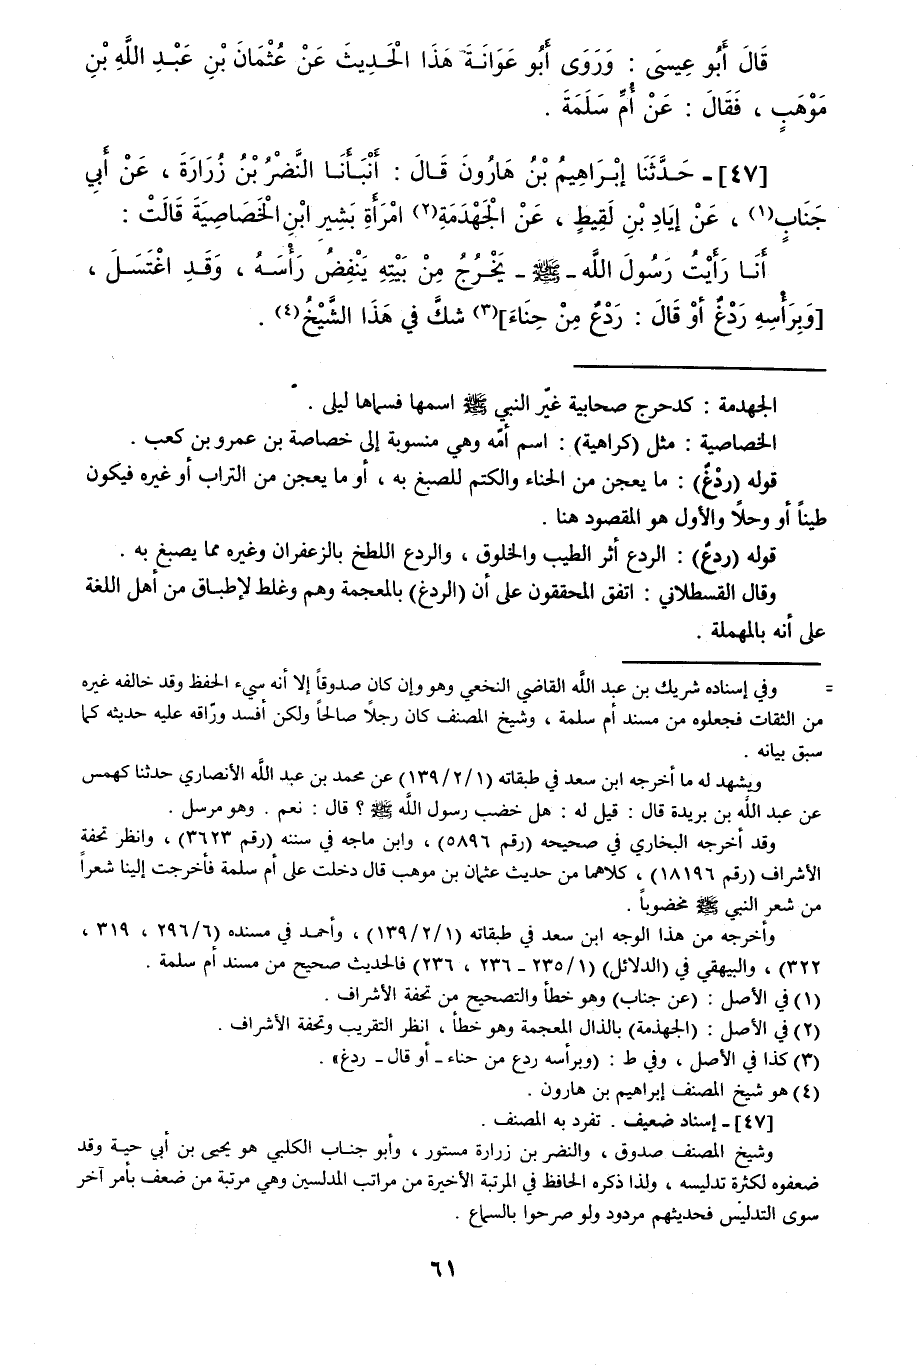 قَالَ أَبُو عِيسَى : وَرَوَى أَبُو عَوَانَةَ هَذَا الْحَدِيثَ عَنْ عُثْمَانَ بْنِ عَبْدِ اللَّهِ بْنِ
مَوْهَبٍ ، فَقَالَ : عَنْ أُمِّ سَلَمَةَ .
[٤٧] ـ حَدَّثَنَا إِبْرَاهِيمُ بْنُ هَارُونَ قَالَ : أَنْبَأَنَا النَّضْرُ بْنُ زُرَارَةَ ، عَنْ أَبِي
جَنَابٍ(١) ، عَنْ إِيَادِ بْنِ لَقِيطٍ ، عَنْ الْجَهْدَمَةِ(٢) امْرَأَةِ بَشِيرِ ابْنِ الْخَصَاصِيَةَ قَالَتْ :
أَنَا رَأَيْتُ رَسُولَ اللَّه ـ ﷺ ـ يَخْرُجُ مِنْ بَيْتِهِ يَنْفِضُ رَأْسَهُ ، وَقَدِ اغْتَسَلَ ،
[وَبِرَأْسِهِ رَدْغٌ أَوْ قَالَ : رَدْعٌ مِنْ حِنَاءَ](٣) شكَّ في هَذَا الشَّيْخُ(٤) .
الجهدمة : كدحرج صحابية غيّر النبي ﷺ اسمها فسماها ليلى .
الخصاصية : مثل (كراهية) : اسم أمّه وهي منسوبة إلى خصاصة بن عمرو بن كعب .
قوله (ردْغٌ) : ما يعجن من الحناء والكتم للصبغ به ، أو ما يعجن من التراب أو غيره فيكون
طيناً أو وحلًا والأول هو المقصود هنا .
قوله (ردعٌ) : الردع أثر الطيب والخلوق ، والردع اللطخ بالزعفران وغيره مما يصبغ به .
وقال القسطلاني : اتفق المحققون على أن (الردغ) بالمعجمة وهم وغلط لإطباق من أهل اللغة
على أنه بالمهملة .
= وفي إسناده شريك بن عبد اللَّه القاضي النخعي وهو وإن كان صدوقاً إلا أنه سيء الحفظ وقد خالفه غيره
من الثقات فجعلوه من مسند أم سلمة ، وشيخ المصنف كان رجلًا صالحاً ولكن أفسد ورّاقه عليه حديثه كما
سبق بيانه .
ويشهد له ما أخرجه ابن سعد في طبقاته (١/٢/١٣٩) عن محمد بن عبد اللَّه الأنصاري حدثنا كهمس
عن عبد اللَّه بن بريدة قال : قيل له : هل خضب رسول اللَّه ﷺ ؟ قال : نعم . وهو مرسل .
وقد أخرجه البخاري في صحيحه (رقم ٥٨٩٦) ، وابن ماجه في سننه (رقم ٣٦٢٣) ، وانظر تحفة
الأشراف (رقم ١٨١٩٦) ، كلاهما من حديث عثمان بن موهب قال دخلت على أم سلمة فأخرجت إلينا شعراً
من شعر النبي ﷺ مخضوباً .
وأخرجه من هذا الوجه ابن سعد في طبقاته (١/٢/١٣٩) ، وأحمد في مسنده (٦/٢٩٦ ، ٣١٩ ،
٣٢٢) ، والبيهقي في (الدلائل) (١/٢٣٥ ـ ٢٣٦ ، ٢٣٦) فالحديث صحيح من مسند أم سلمة .
(١) في الأصل : (عن جناب) وهو خطأ والتصحيح من تحفة الأشراف .
(٢) في الأصل : (الجهذمة) بالذال المعجمة وهو خطأ ، انظر التقريب وتحفة الأشراف .
(٣) كذا في الأصل ، وفي ط : (وبرأسه ردع من حناء ـ أو قال ـ ردغ» .
(٤) هو شيخ المصنف إبراهيم بن هارون .
[٤٧] ـ إسناد ضعيف . تفرد به المصنف .
وشيخ المصنف صدوق ، والنضر بن زرارة مستور ، وأبو جناب الكلبي هو يحيى بن أبي حية وقد
ضعفوه لكثرة تدليسه ، ولذا ذكره الحافظ في المرتبة الأخيرة من مراتب المدلسين وهي مرتبة من ضعف بأمر آخر
سوى التدليس فحديثهم مردود ولو صرحوا بالسماع .
٦١